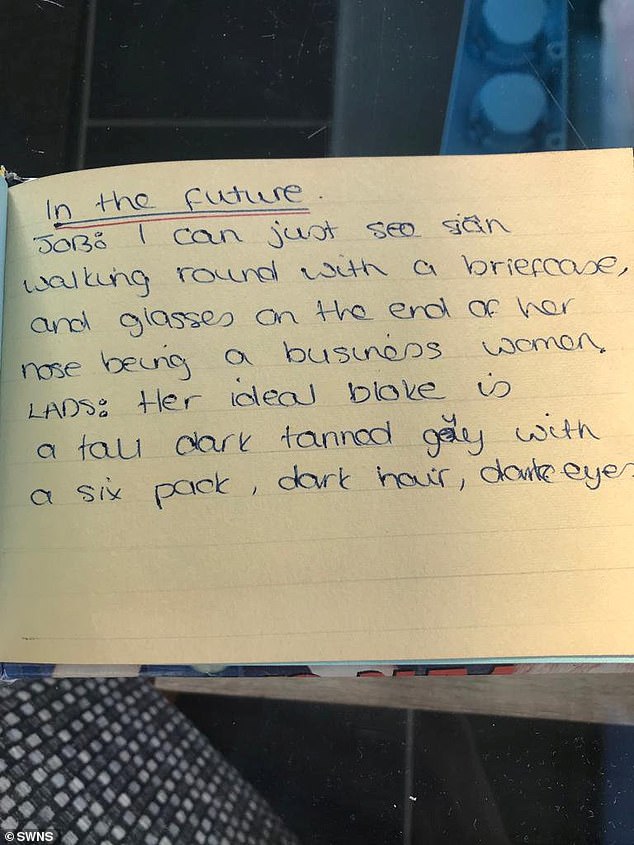 In the future.
JOB: I can just see siân
walking round with a briefcase,
and glasses on the end of her
nose being a business women.
LADS: Her ideal bloke is
a tall dark tanned guy with
a six pack, dark hair, dark eyes
© SWNS